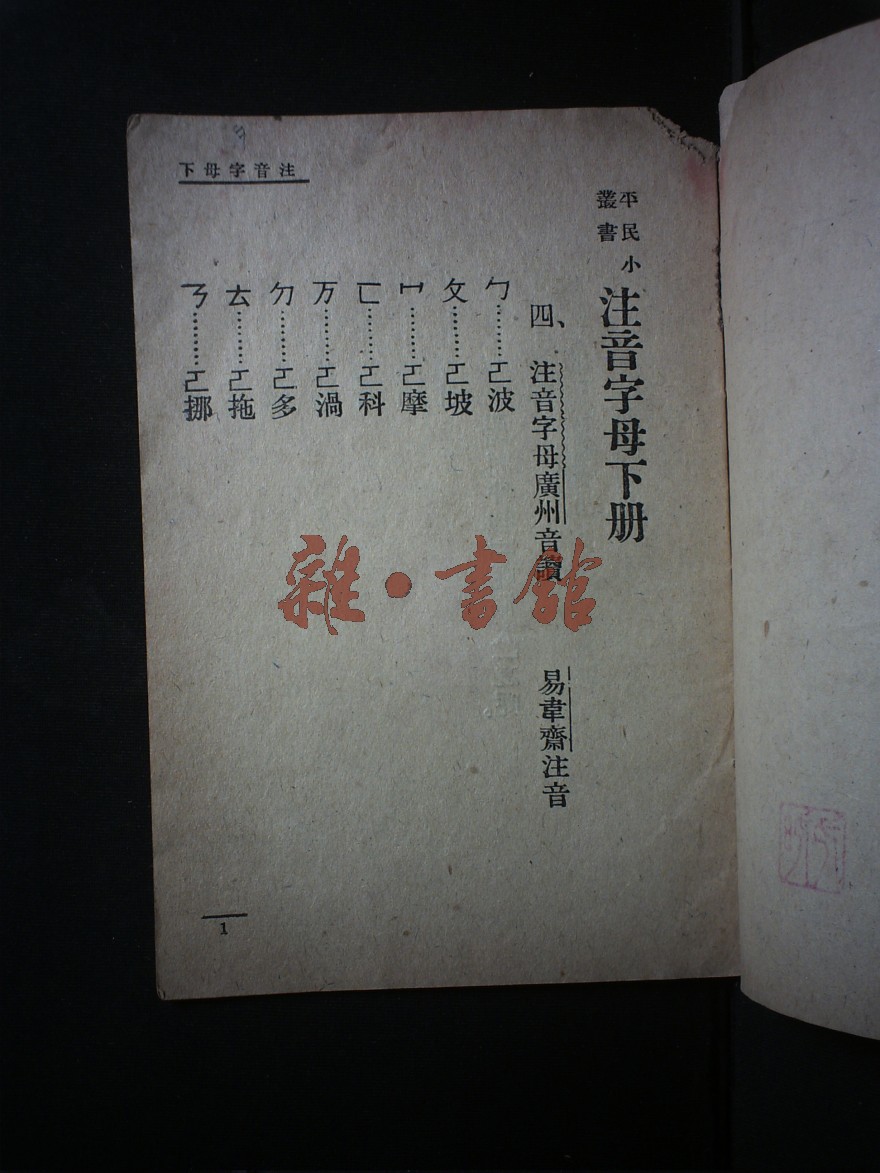 平民小
叢書
注音字母下册
四、注音字母廣州音讀
易韋齋注音
ㄅ………ㄛ波
ㄆ………ㄛ坡
ㄇ………ㄛ摩
ㄈ………ㄛ科
万………ㄛ渦
ㄉ………ㄛ多
ㄊ………ㄛ拖
ㄋ………ㄛ挪
下母字音注
1
雜·書館